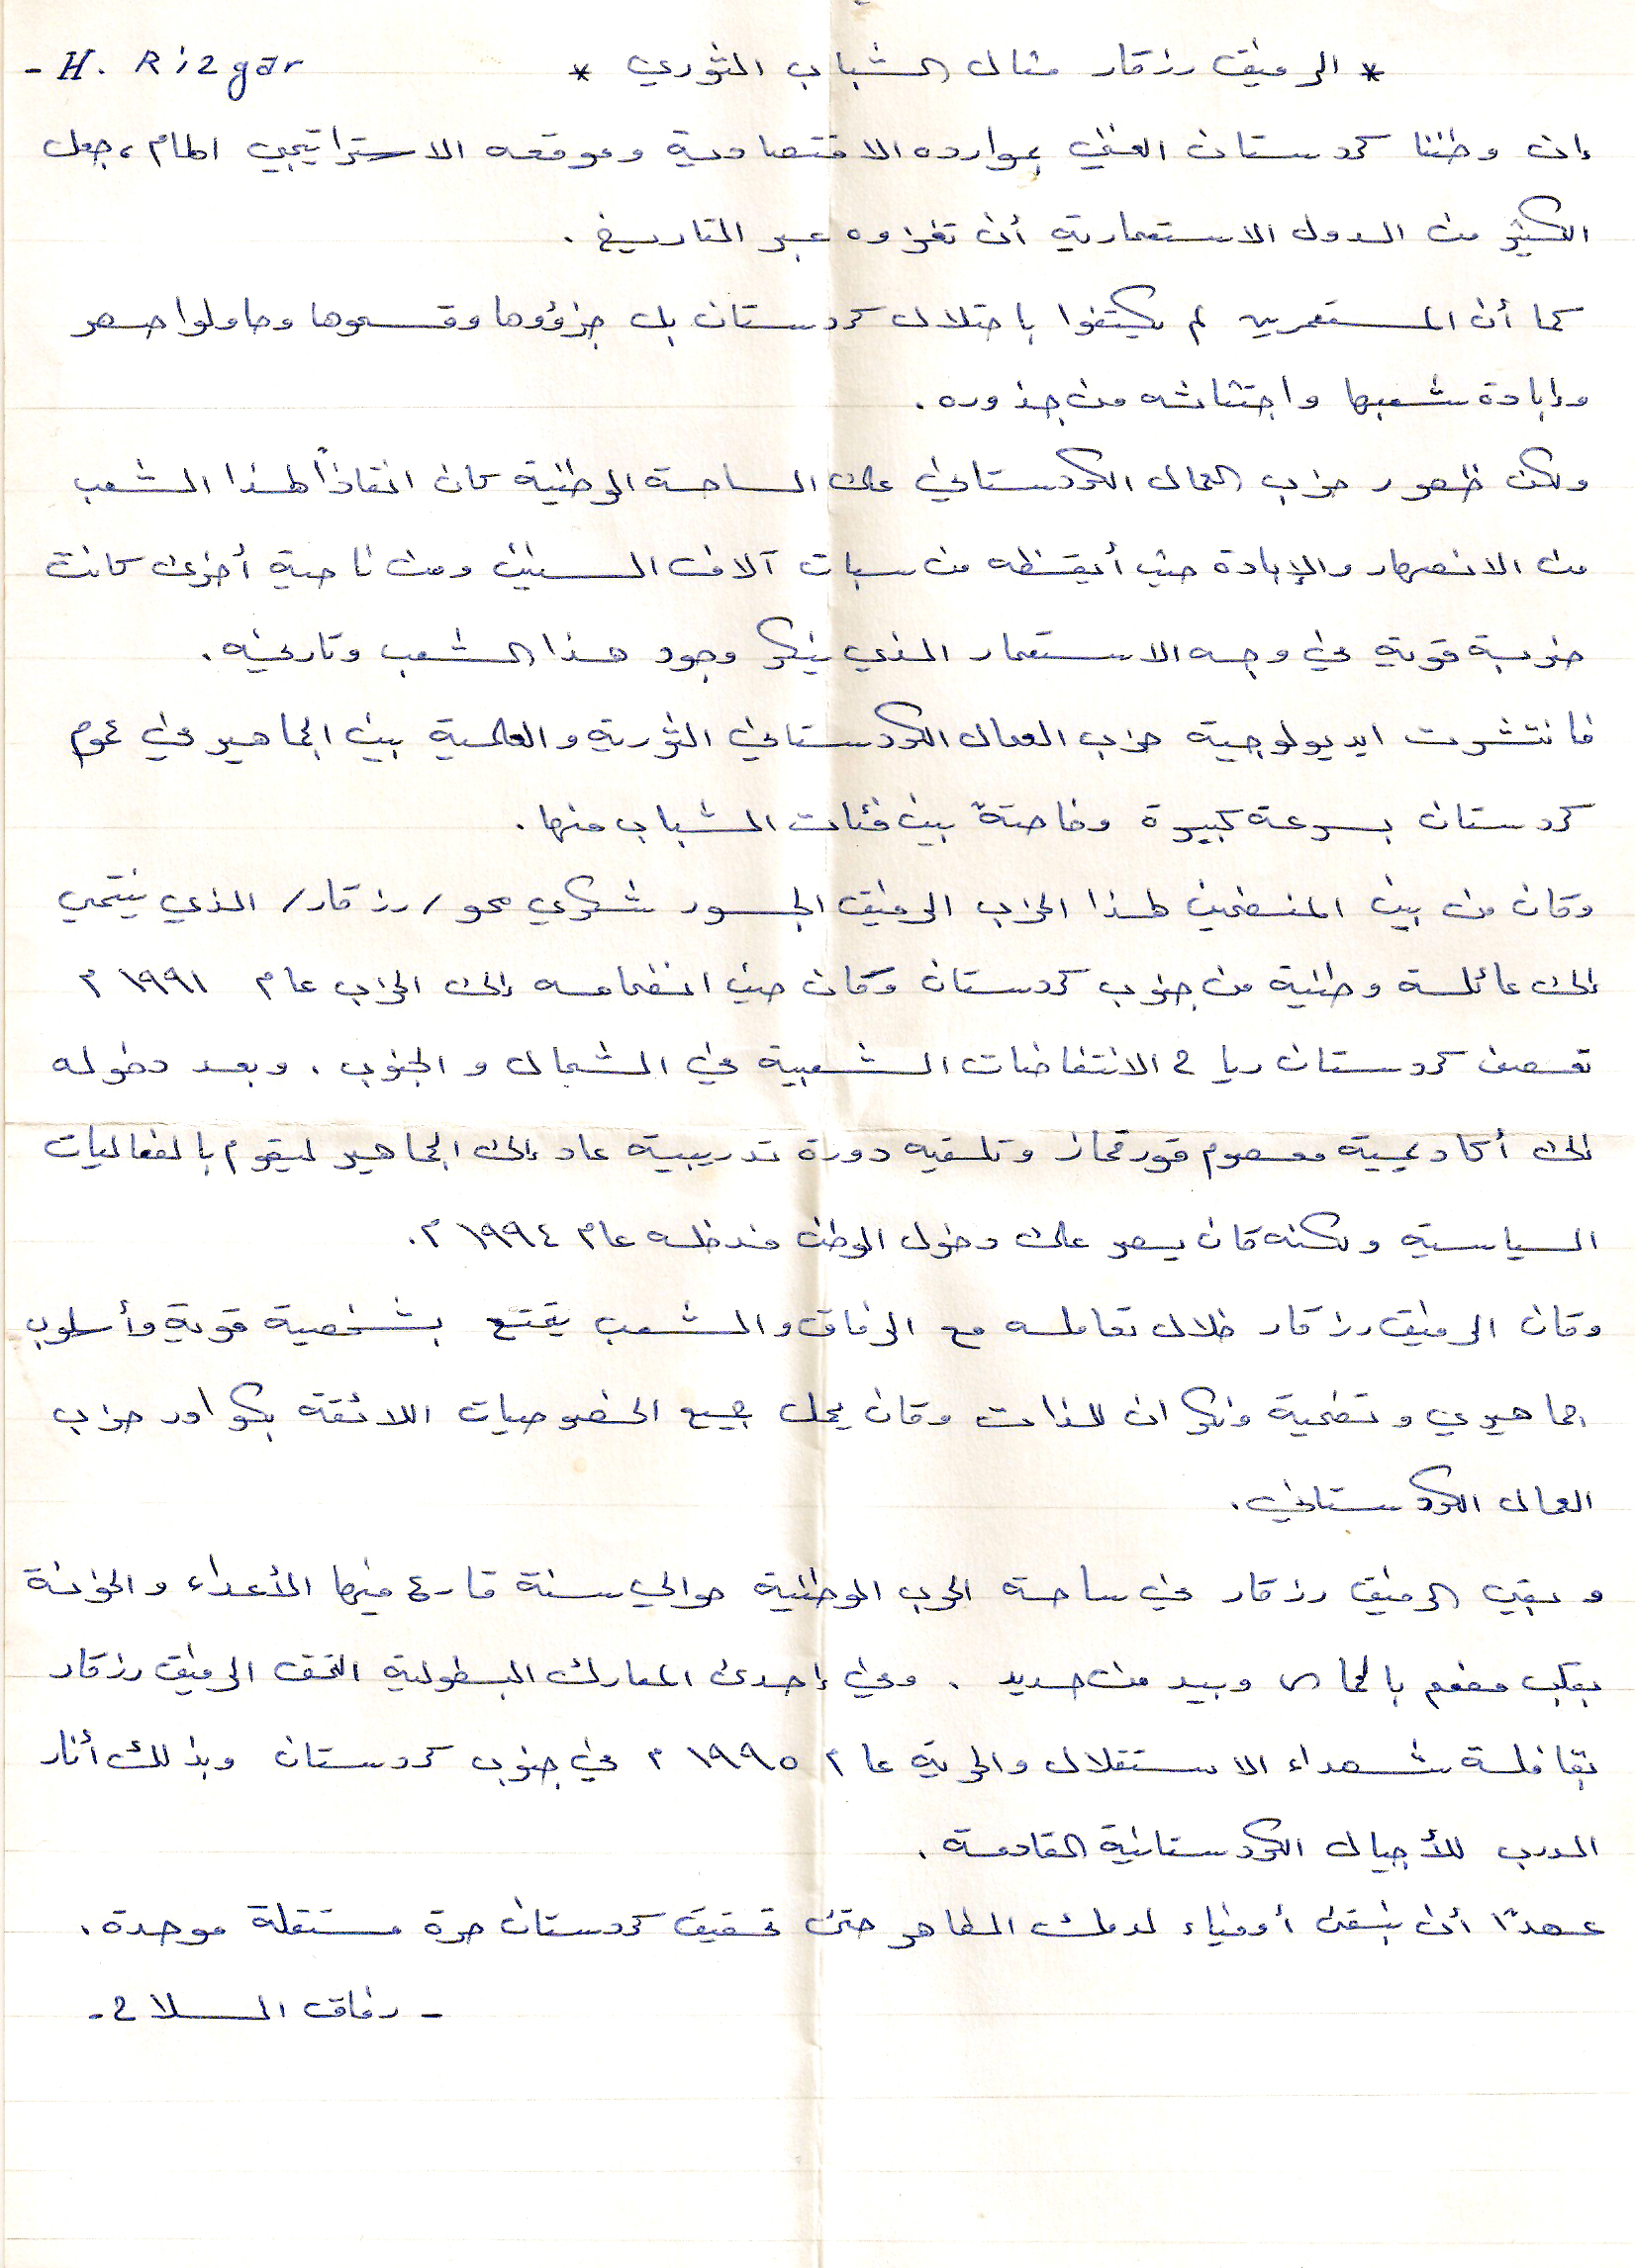 * الرفيق رزقار مثال الشباب الثوري * - H. Rizgar
إن وطننا كردستان الغني بموارده الاقتصادية وموقعه الاستراتيجي الهام، جعل
الكثير من الدول الاستعمارية أن تغزوه عبر التاريخ.
كما أن المستعمرين لم يكتفوا باحتلال كردستان بل جزؤوها وقسموها وحاولوا صهر
وإبادة شعبها واجتثاثه من جذوره.
ولكن ظهور حزب العمال الكردستاني على الساحة الوطنية كان انقاذاً لهذا الشعب
من الانصهار والإبادة حيث أيقظه من سبات آلاف السنين ومن ناحية أخرى كانت
ضربة قوية في وجه الاستعمار الذي ينكر وجود هذا الشعب وتاريخه.
فانتشرت ايديولوجية حزب العمال الكردستاني الثورية والعلمية بين الجماهير في عموم
كردستان بسرعة كبيرة وخاصةً بين فئات الشباب منها.
وكان من بين المنضمين لهذا الحزب الرفيق الجسور شكري محو /رزقار/ الذي ينتمي
إلى عائلة وطنية من جنوب كردستان وكان حين انضمامه إلى الحزب عام ١٩٩١ م
تعصف كردستان رياح الانتفاضات الشعبية في الشمال والجنوب. وبعد دخوله
إلى أكاديمية معصوم قورقماز وتلقيه دورة تدريبية عاد إلى الجماهير ليقوم بالفعاليات
السياسية ولكنه كان يصر على دخول الوطن فدخله عام ١٩٩٤ م.
وكان الرفيق رزقار خلال تعامله مع الرفاق والشعب يتمتع بشخصية قوية وأسلوب
جماهيري وتضحية ونكران للذات وكان يحمل جميع الخصوصيات اللائقة بكوادر حزب
العمال الكردستاني.
وبقي الرفيق رزقار في ساحة الحرب الوطنية حوالي سنة قارع فيها الأعداء والخونة
بقلب مفعم بالحماس وبيد من حديد. وفي إحدى المعارك البطولية التحق الرفيق رزقار
بقافلة شهداء الاستقلال والحرية عام ١٩٩٥ م في جنوب كردستان وبذلك أنار
الدرب للأجيال الكردستانية القادمة.
عهداً أن نبقى أوفياء لدمك الطاهر حتى تحقيق كردستان حرة مستقلة موحدة.
- رفاق السلاح -